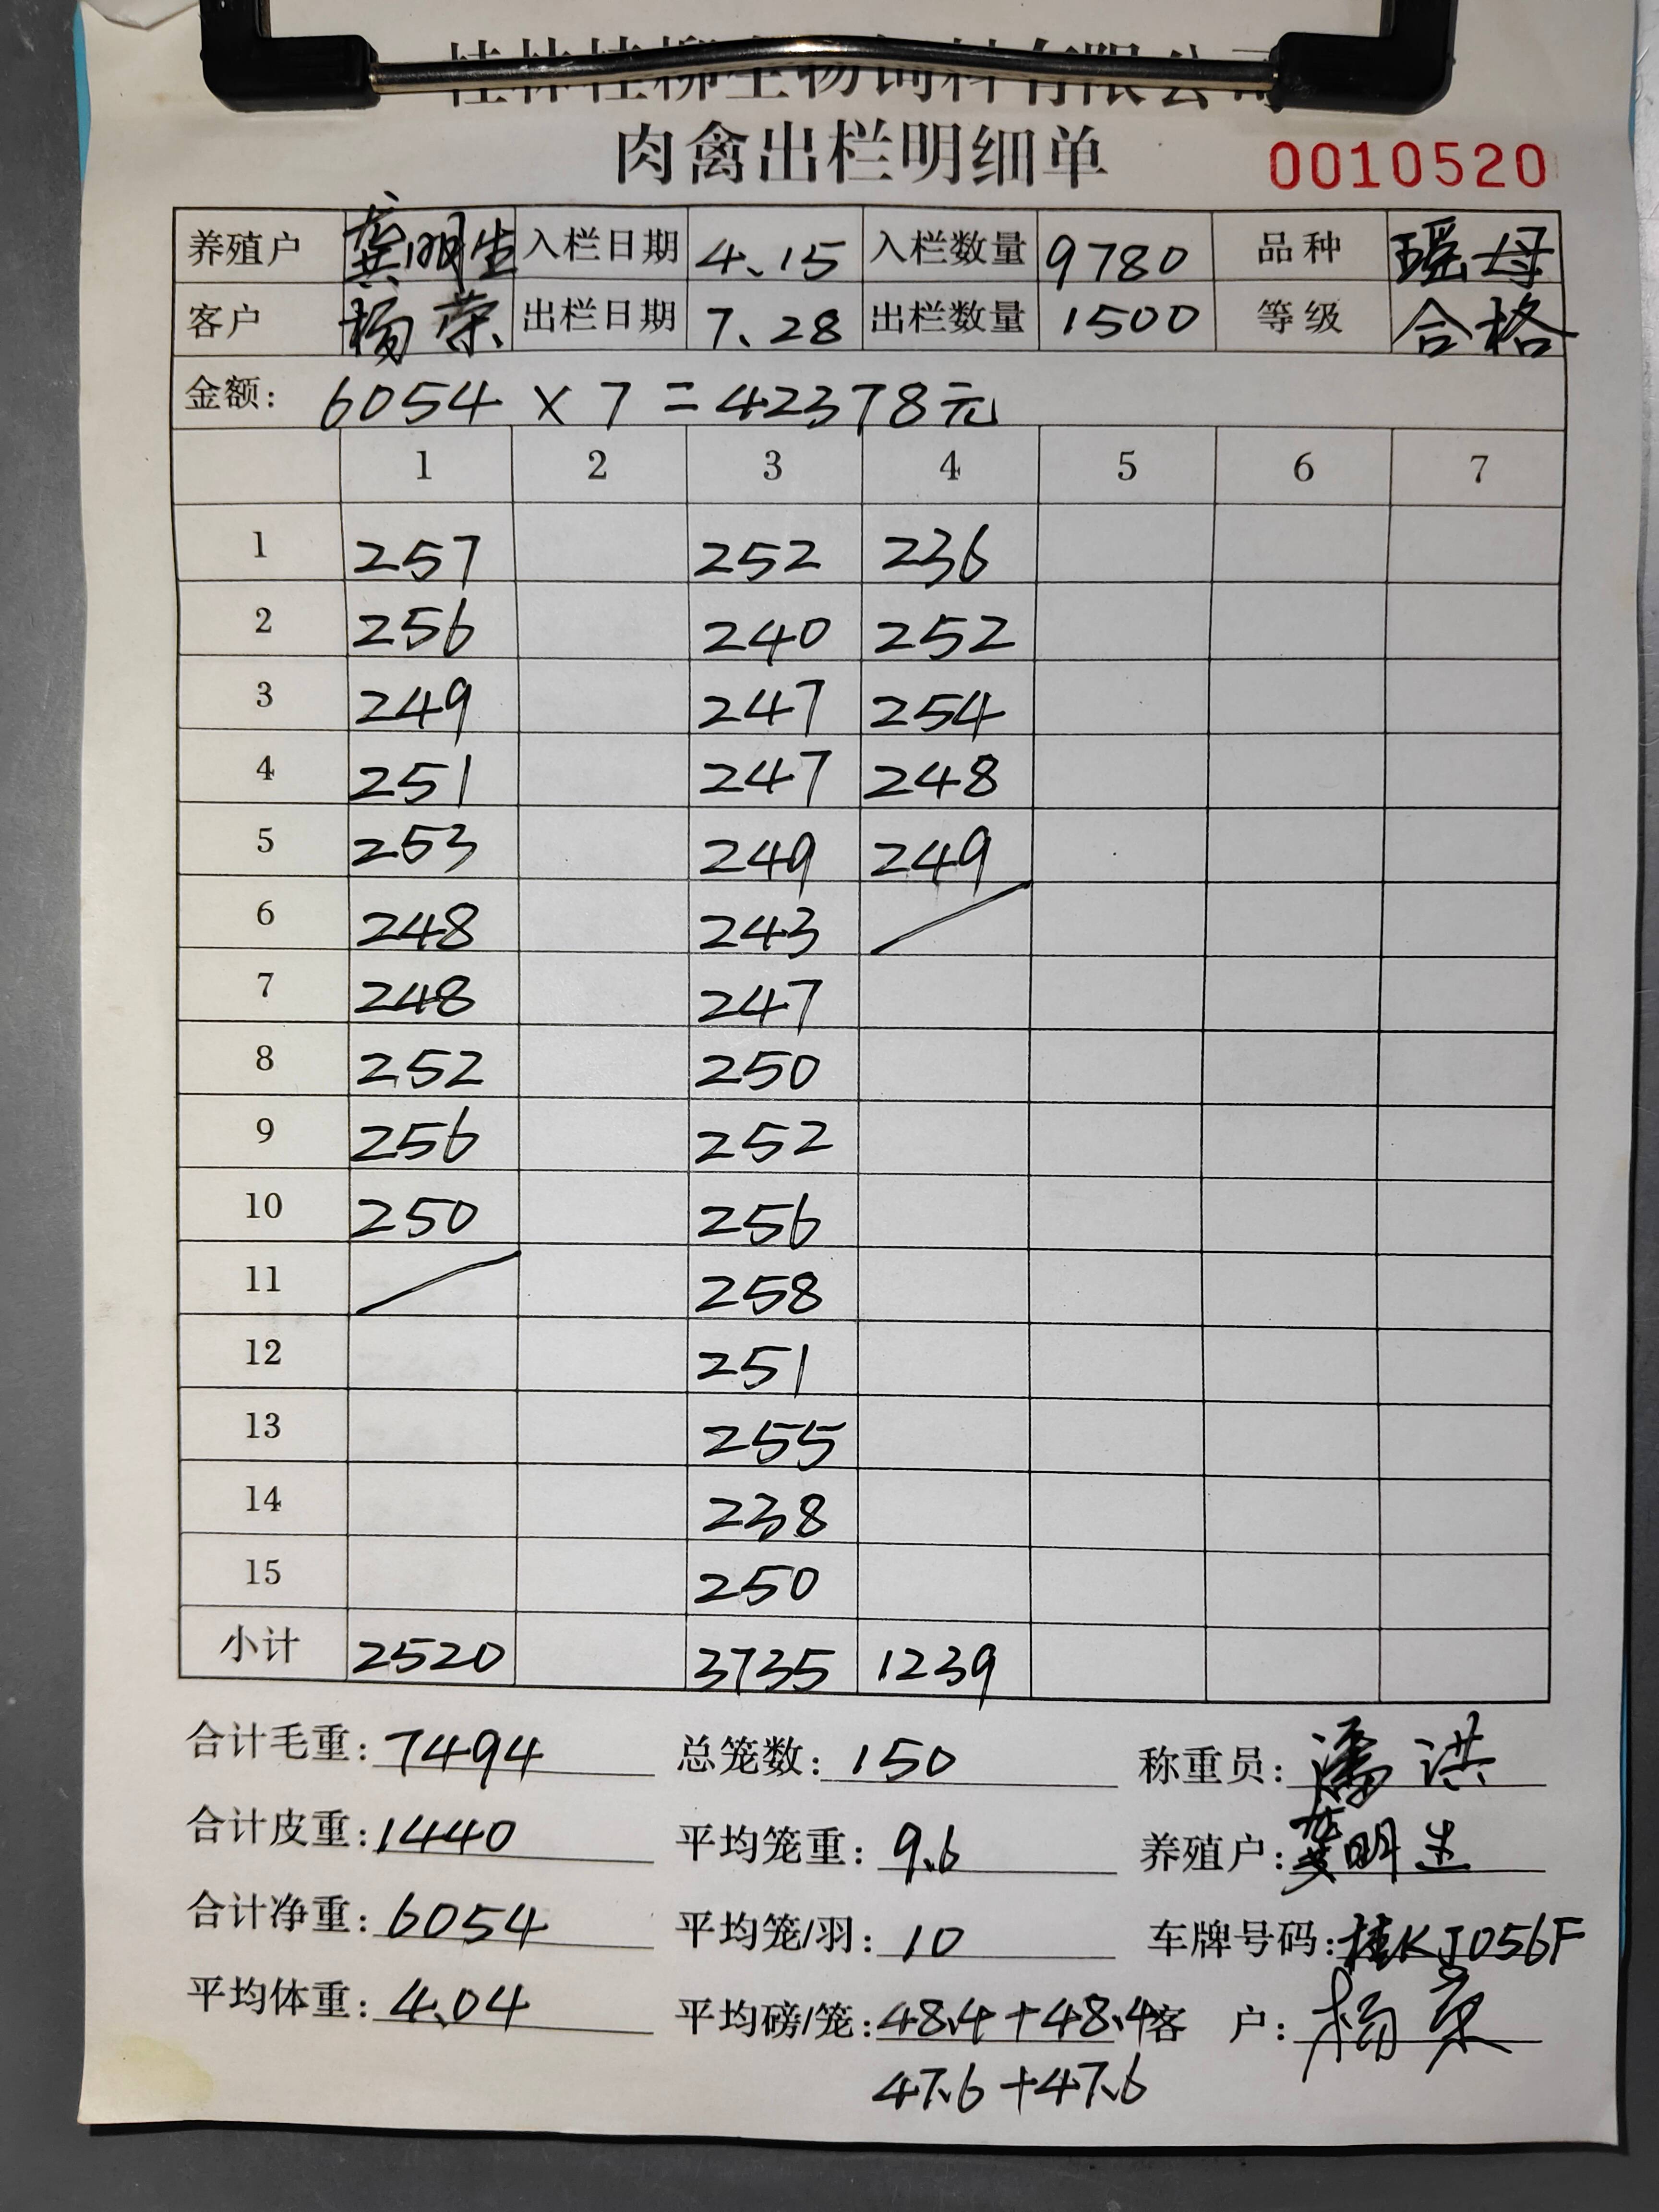 桂林桂柳生物饲料有限公司
肉禽出栏明细单 0010520
养殖户 龚明生 入栏日期 4.15 入栏数量 9780 品种 瑶母
客户 杨荣 出栏日期 7.28 出栏数量 1500 等级 合格
金额: 6054 × 7 = 42378元
1 2 3 4 5 6 7
1 257 252 236
2 256 240 252
3 249 247 254
4 251 247 248
5 253 249 249
6 248 243
7 248 247
8 252 250
9 256 252
10 250 256
11 258
12 251
13 255
14 238
15 250
小计 2520 3735 1239
合计毛重: 7494 总笼数: 150 称重员: 潘洪
合计皮重: 1440 平均笼重: 9.6 养殖户: 龚明生
合计净重: 6054 平均笼/羽: 10 车牌号码: 桂KJ056F
平均体重: 4.04 平均磅/笼: 48.4+48.4 客 户: 杨荣
47.6+47.6